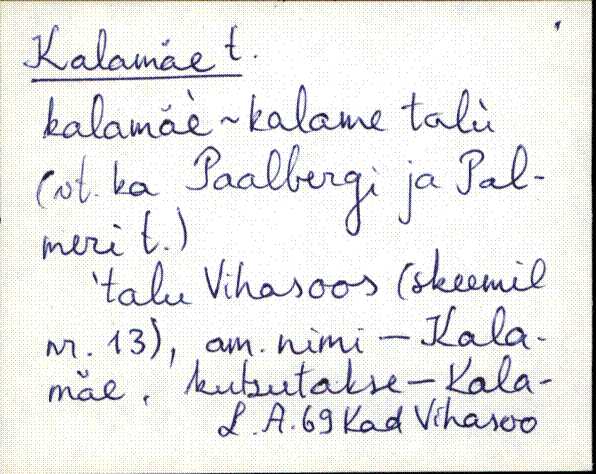 Kalamäe t.
kalamäè ~ kalame talù
(vt. ka Paalbergi ja Pal-
meri t.)
'talu Vihasoos (skeemil
nr. 13), am. nimi – Kala-
mäe, kutsutakse – Kala-
L. A. 69 Kad Vihasoo